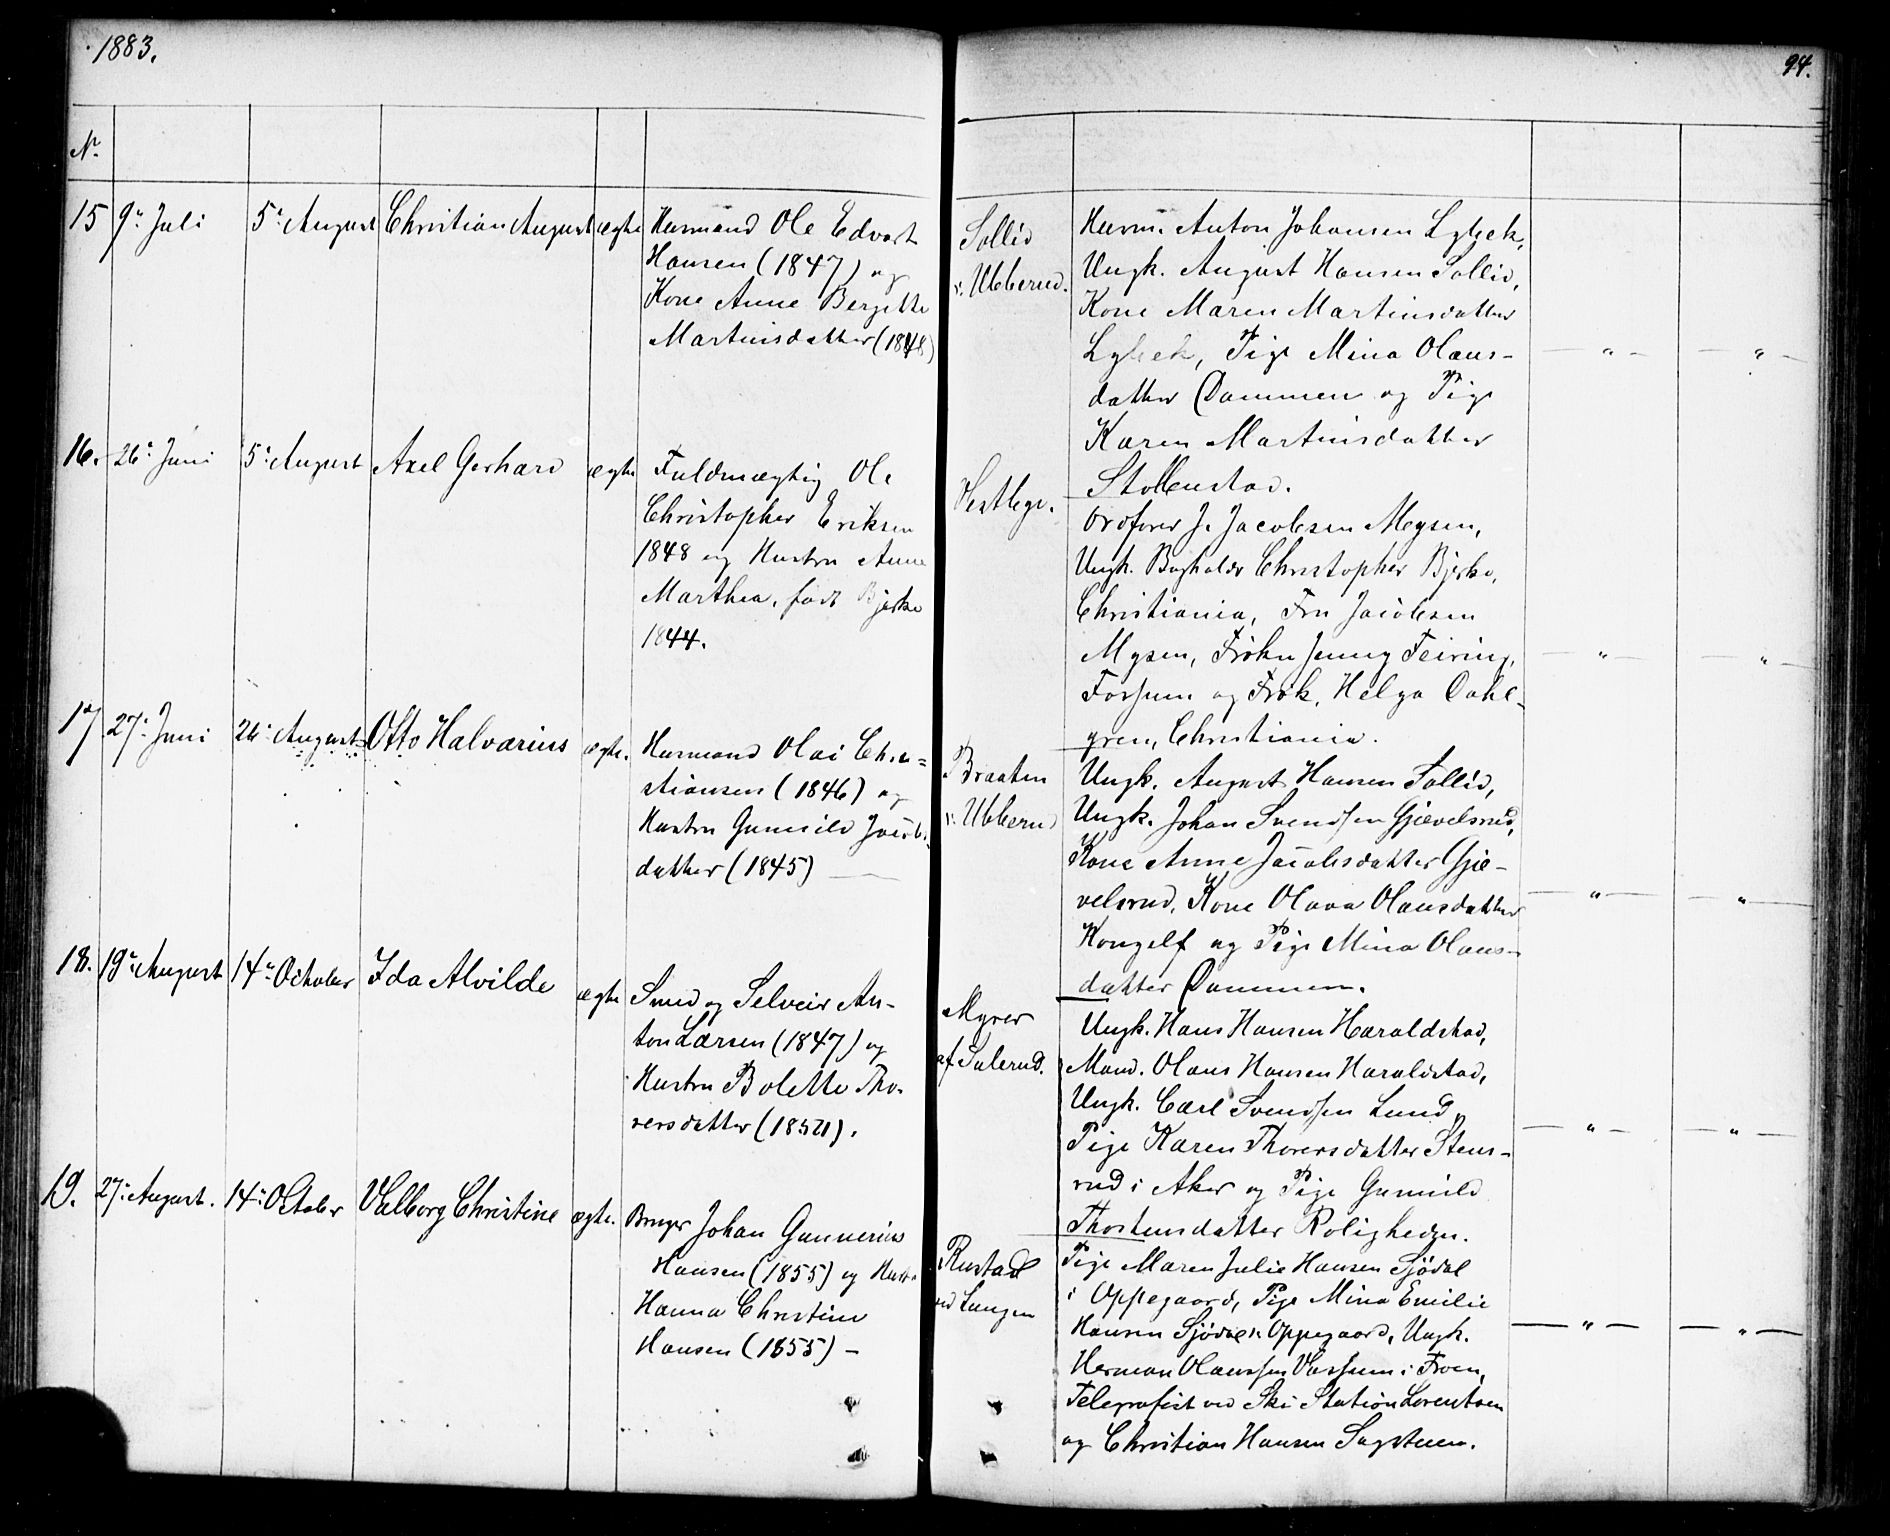 1883.
94.
N.
15
9de Juli
5te August
Christian August
ægte
Husmand Ole Edvart
Hansen (1847) og
Kone Anne Bergitte
Martinsdatter (1848)
Sollid
v. Ubberud.
Husm. Anton Johansen Lybek,
Ungk. August Hansen Sollid,
Kone Maren Martinsdatter
Lybek, Pige Mina Olaus-
datter Dammen og Pige
Karen Martinsdatter
Stollenstad.
— " — — " —
16.
26de Juni
5te August
Axel Gerhard
ægte
Fuldmægtig Ole
Christopher Eriksen
1848 og Hustru Anne
Marthea, født Bjerke
1844.
Vestbye.
Ordfører J. Jacobsen Mysen,
Ungk. Bogholder Christopher Bjerke,
Christiania, Fru Jacobsen
Mysen, Frøken Jenny Feiring,
Forssum og Frøk. Helga Dahl-
gren, Christiania.
— " — — " —
17.
27de Juni
26de August
Otto Halvarius
ægte.
Husmand Olai Chri=
stiansen (1846) og
Hustru Gunnild Jacobs-
datter (1845) —
Braaten
v. Ubberud
Ungk. August Hansen Sollid,
Ungk. Johan Svendsen Gjævelsrud,
Kone Anne Jacobsdatter Gjæ-
velsrud, Kone Olava Olausdatter
Kongelf og Pige Mina Olaus-
datter Dammen.
— " — — " —
18.
19de August
14de October
Ida Alvilde
ægte
Smed og Selveier An-
ton Larsen (1847) og
Hustru Bolette Tho-
rersdatter (1852).
Myrer
af Sulerud.
Ungk. Hans Hansen Haraldstad,
Mand. Olaus Hansen Haraldstad,
Ungk. Carl Svendsen Lund,
Pige Karen Thorersdatter Stens-
rud i Aker og Pige Gunnild
Thostensdatter Roligheden.
— " — — " —
19.
27de August.
14de October
Valborg Christine
ægte.
Bruger Johan Gunnerius
Hansen (1855) og Hustru
Hanna Christine
Hansen (1855) —
Rustad
ved Langen
Pige Maren Julie Hansen Sjødal
i Oppegaard, Pige Mina Emilie
Hansen Sjødal i Oppegaard, Ungk.
Herman Olaussen Vassum i Froen,
Telegrafist ved Ski Station Lorentzen
og Christian Hansen Sagstuen.
— " — — " —